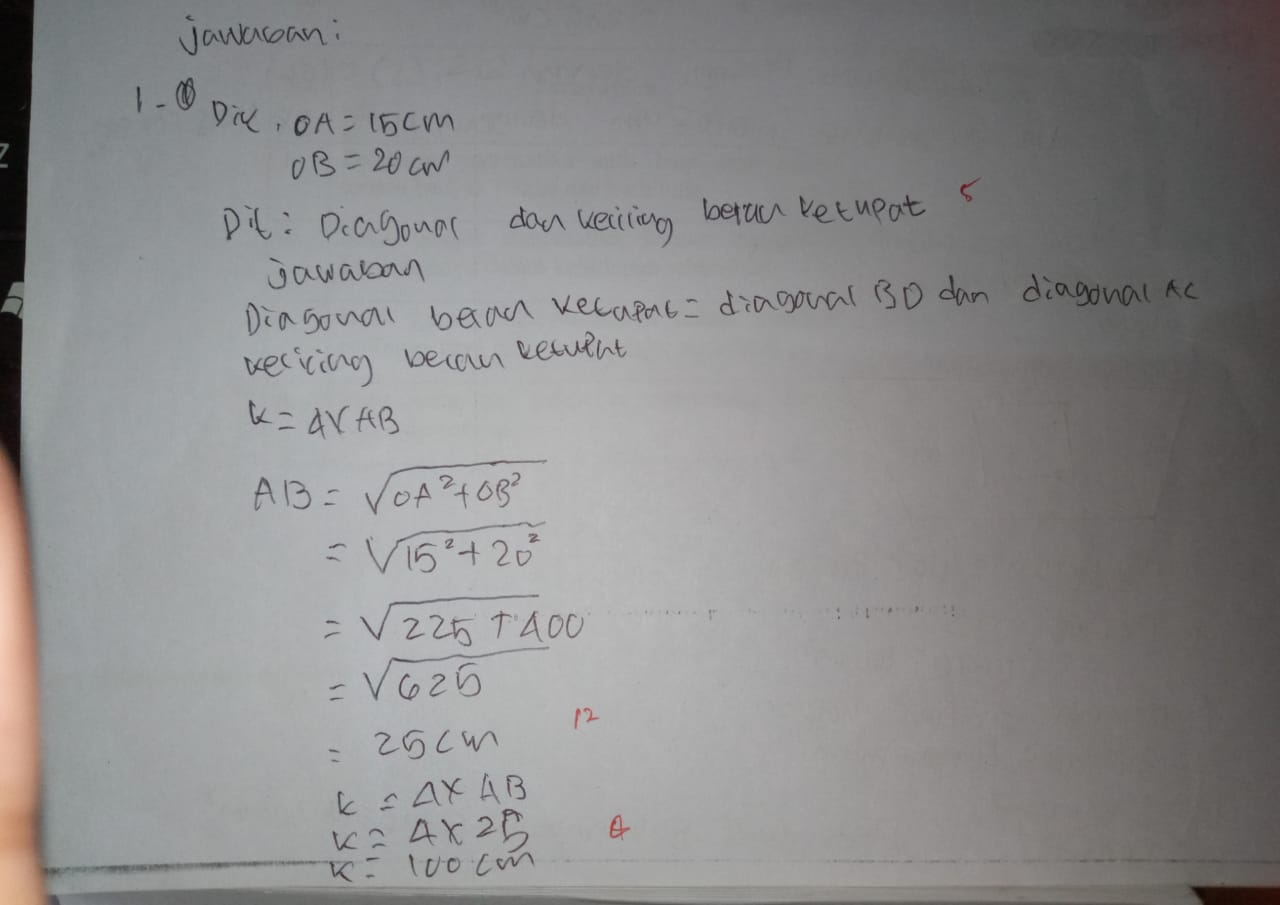 jawaban:
1. Dik. OA = 15cm
OB = 20 cm
Dit: Diagonal dan keliling belah ketupat 5
jawaban
Diagonal belah ketupat = diagonal BD dan diagonal AC
keliling belah ketupat
k = 4 x AB
AB = √OA²+OB²
= √15²+20²
= √225 + 400
= √625
= 25 cm 12
k = 4x AB
k = 4 x 25 4
k = 100 cm